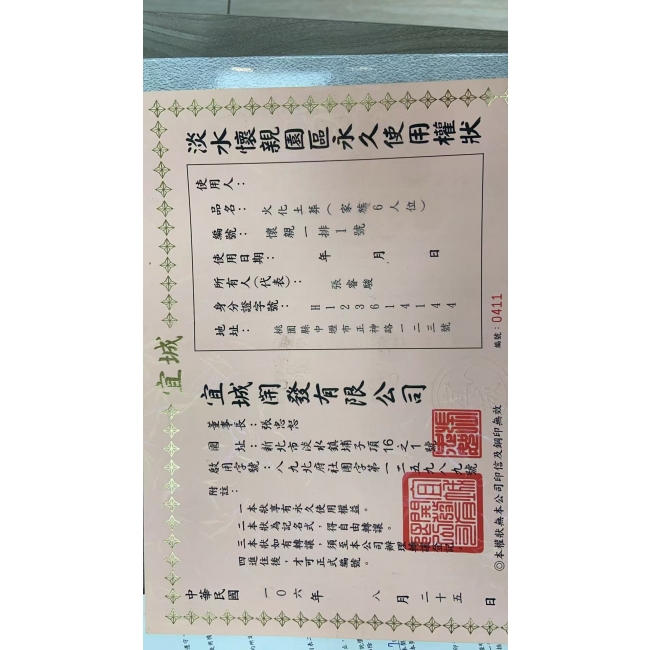 宜城
淡水懷親園區永久使用權狀
使用人：
品名：火化土葬（家族6人位）
編號：懷親一排1號
使用日期： 年 月 日
所有人(代表)：張睿駿
身分證字號：H123614144
地址：桃園縣中壢市正神路一二三號
宜城開發有限公司
董事長：張忠恕
園址：新北市淡水鎮埔子頂16之1號
啟用字號：八九北府社園字第一二五九八九號
附註：
一本狀享有永久使用權益。
二本狀為記名式，得自由轉讓。
三本狀如有轉讓，須至本公司辦理
四進住後，才可正式編號。
中華民國 一０六年 八月二十五日
編號：0411
◎本權狀無本公司印信及鋼印無效